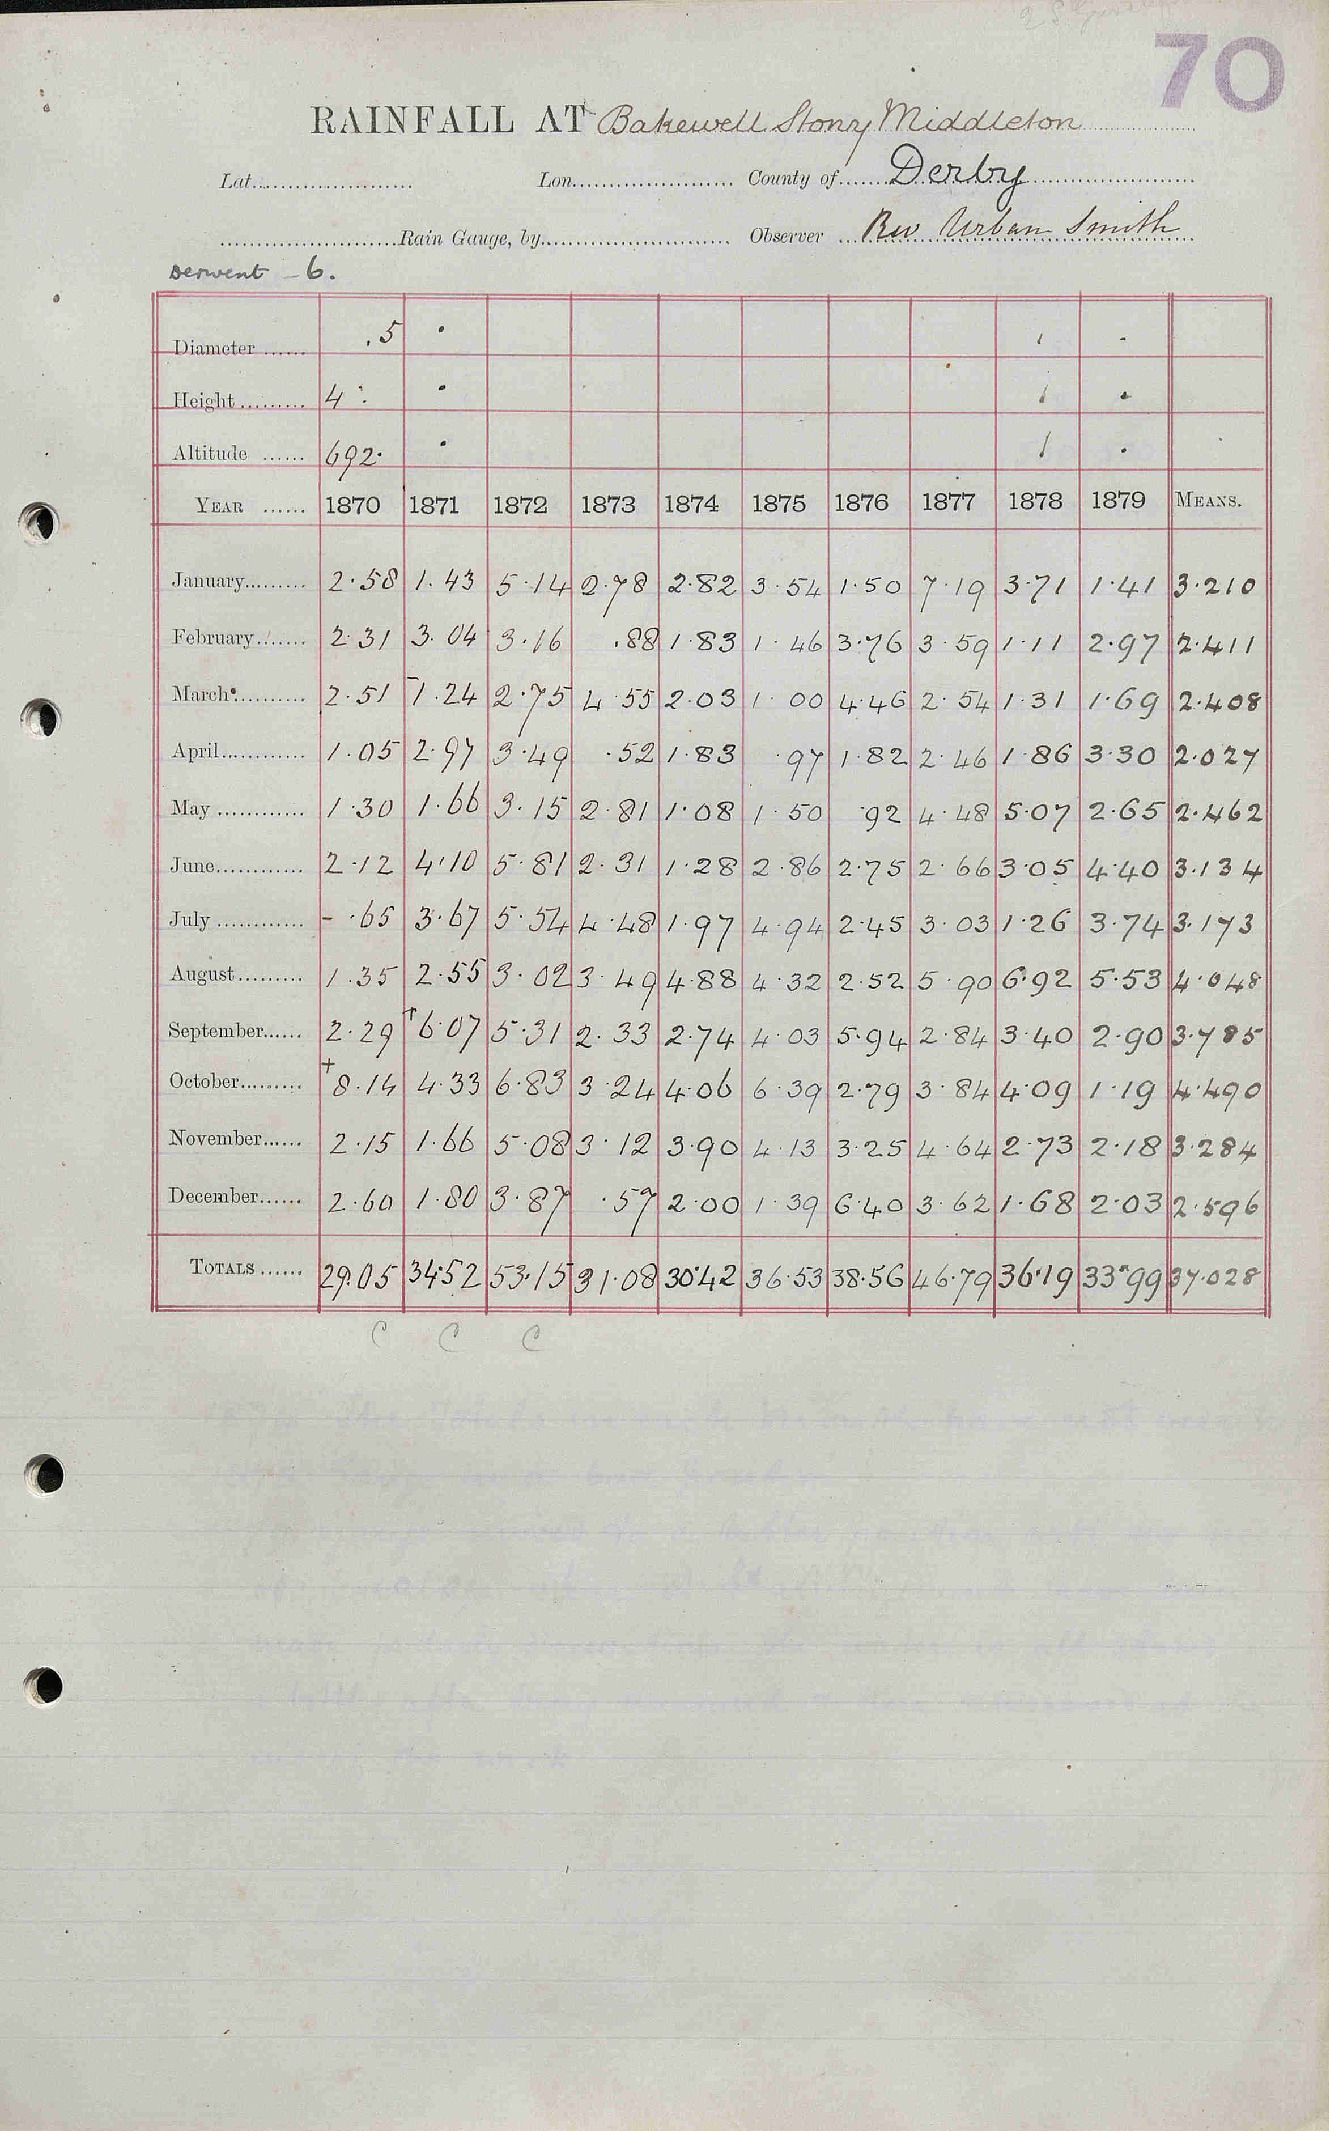 70
RAINFALL AT Bakewell Stony Middleton
Lat. Lon. County of Derby
Rain Gauge, by Observer Rev Urban Smith
Derwent - 6.
Diameter ...... .5
Height ......... 4 .
Altitude ...... 692.
YEAR ...... 1870 1871 1872 1873 1874 1875 1876 1877 1878 1879 MEANS.
January......... 2.58 1.43 5.14 2.78 2.82 3.54 1.50 7.19 3.71 1.41 3.210
February........ 2.31 3.04 3.16 .88 1.83 1.46 3.76 3.59 1.11 2.97 2.411
March.......... 2.51 1.24 2.75 4.55 2.03 1.00 4.46 2.54 1.31 1.69 2.408
April............ 1.05 2.97 3.49 .52 1.83 .97 1.82 2.46 1.86 3.30 2.027
May ............ 1.30 1.66 3.15 2.81 1.08 1.50 .92 4.48 5.07 2.65 2.462
June............ 2.12 4.10 5.81 2.31 1.28 2.86 2.75 2.66 3.05 4.40 3.134
July ............ - .65 3.67 5.54 4.48 1.97 4.94 2.45 3.03 1.26 3.74 3.173
August......... 1.35 2.55 3.02 3.49 4.88 4.32 2.52 5.90 6.92 5.53 4.048
September...... 2.29 +6.07 5.31 2.33 2.74 4.03 5.94 2.84 3.40 2.90 3.785
October......... +8.14 4.33 6.83 3.24 4.06 6.39 2.79 3.84 4.09 1.19 4.490
November...... 2.15 1.66 5.08 3.12 3.90 4.13 3.25 4.64 2.73 2.18 3.284
December...... 2.60 1.80 3.87 .57 2.00 1.39 6.40 3.62 1.68 2.03 2.596
TOTALS ...... 29.05 34.52 53.15 31.08 30.42 36.53 38.56 46.79 36.19 33.99 37.028
C C C